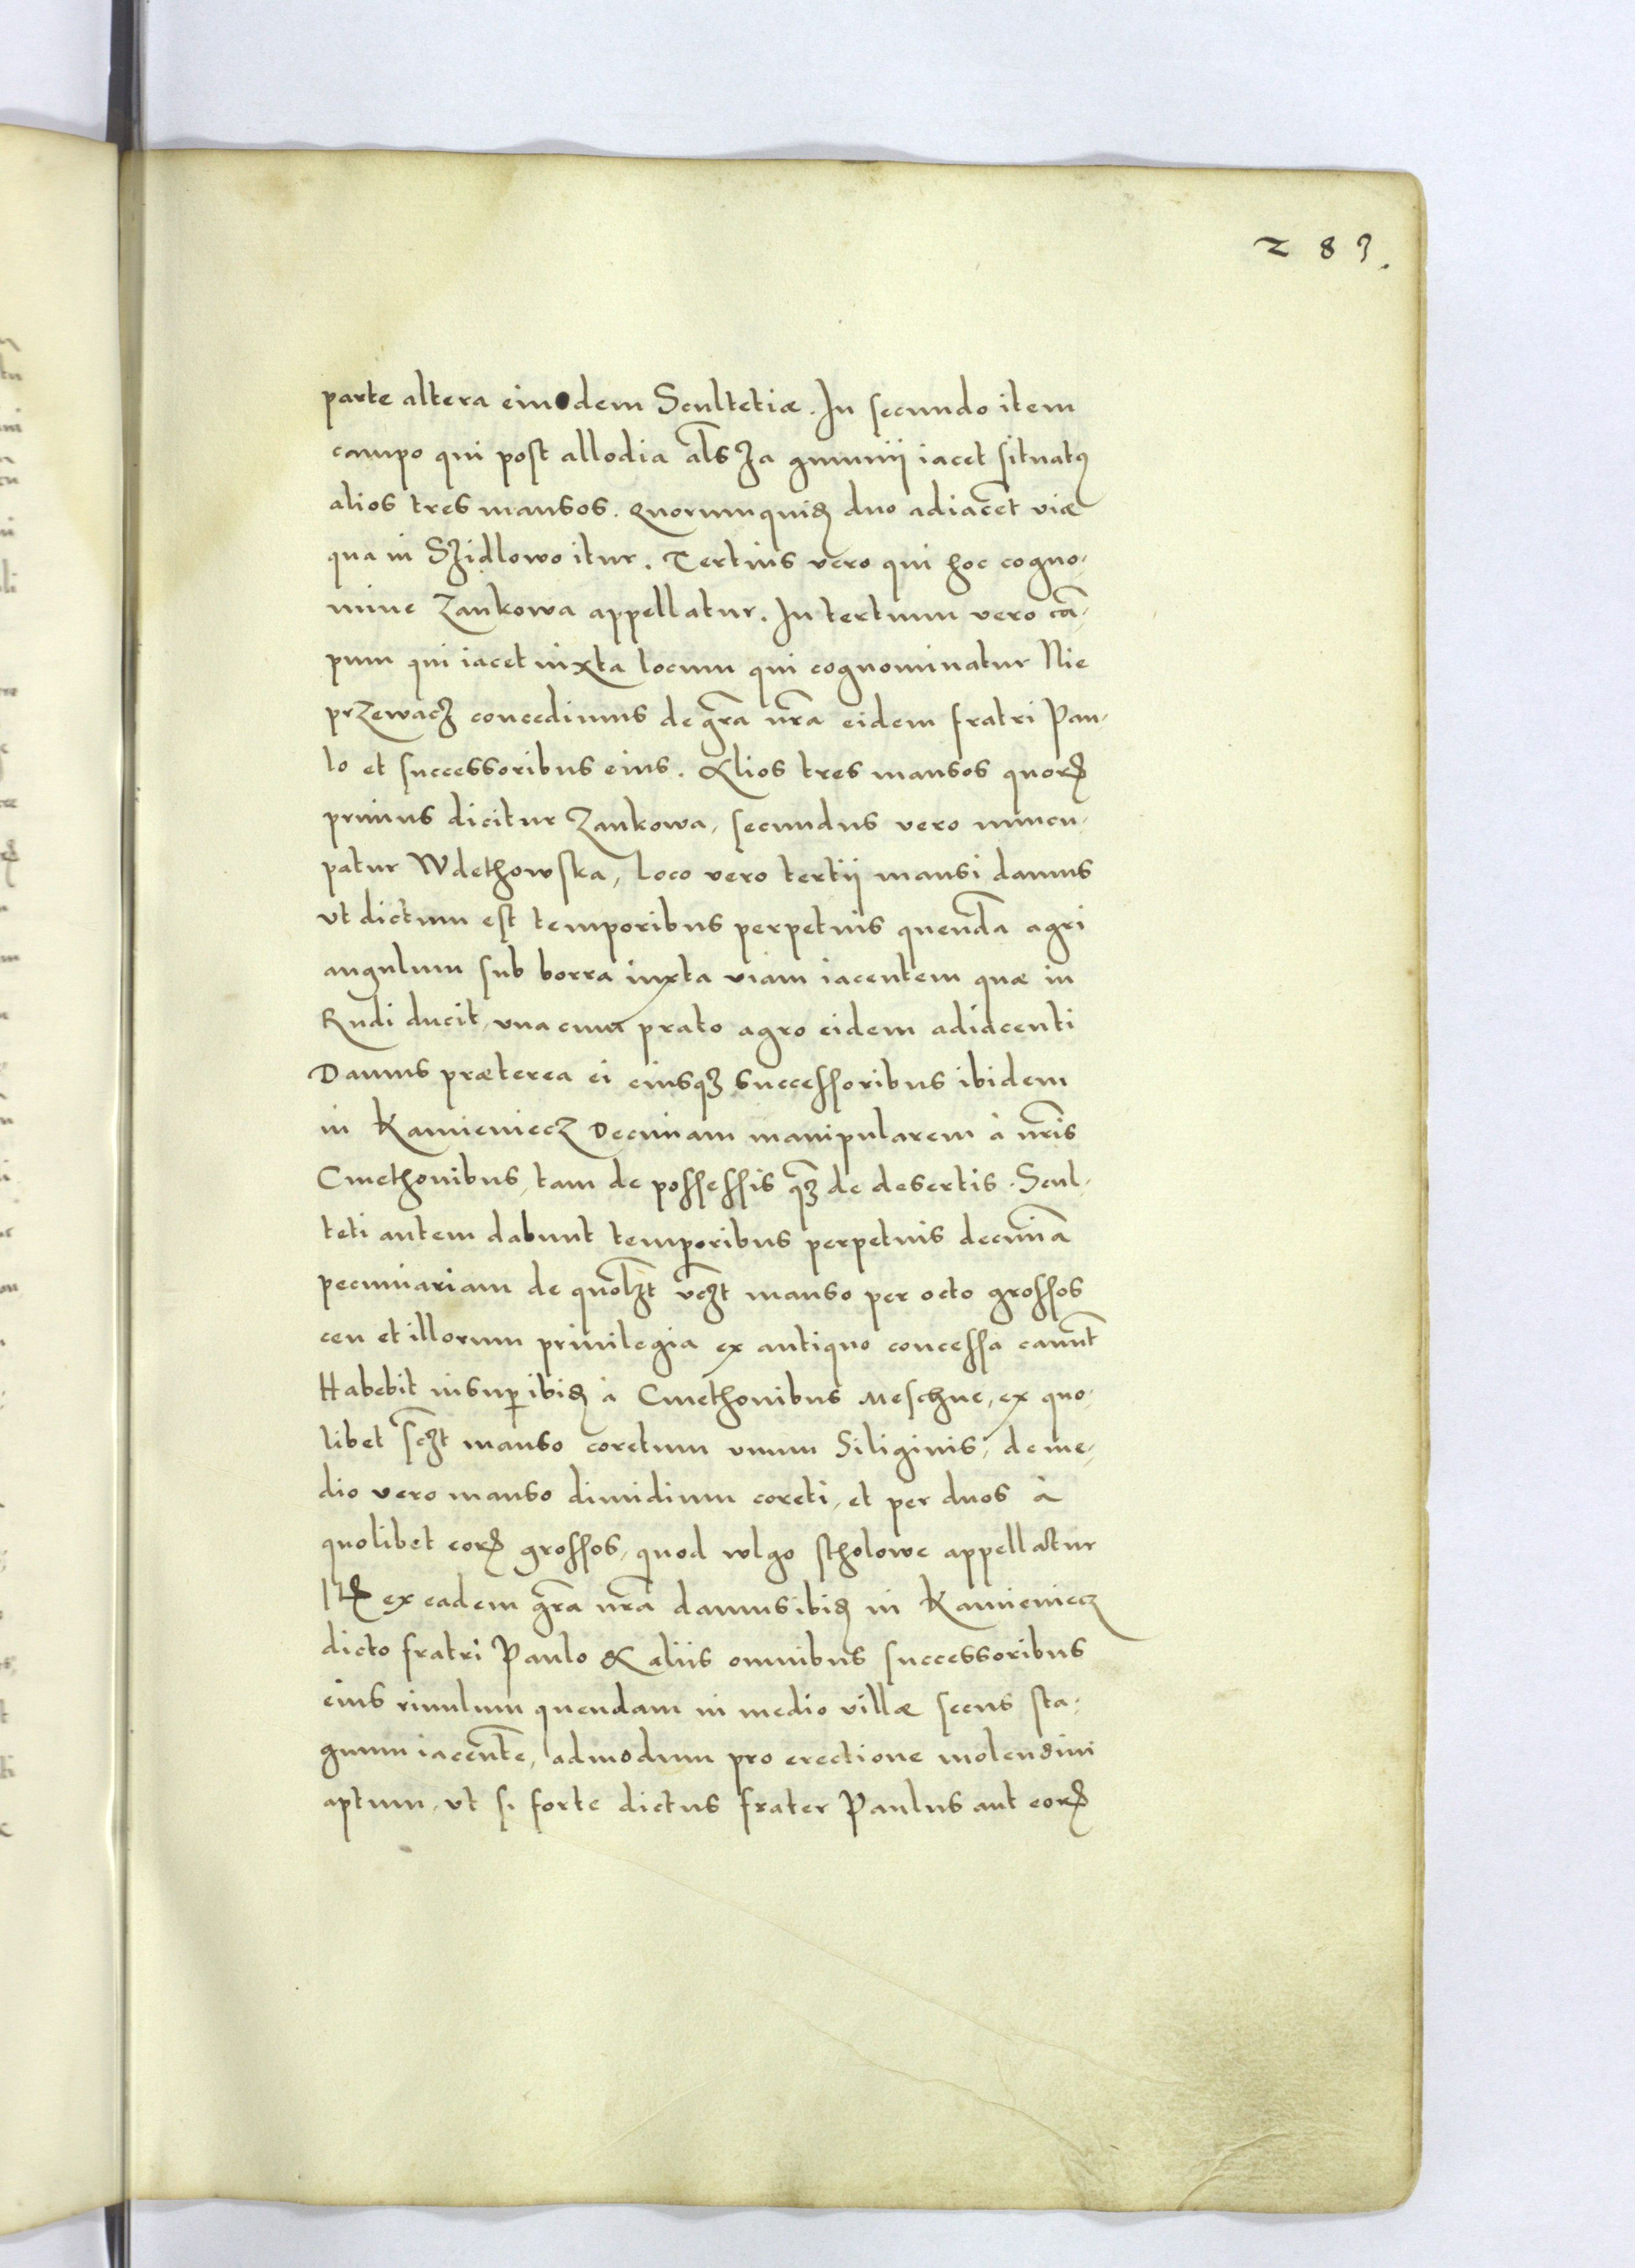 283.
parte altera eiusdem Scultetiæ. In secundo item
campo qui post allodia al̃s Za gumnij iacet situatꝰ
alios tres mansos. Quorumquidꝫ duo adiacẽt viæ
qua in Szidlowo itur. Tertius vero qui hoc cogno-
mine Zankowa appellatur. In tertium vero cã-
pum qui iacet iuxta locum qui cognominatur Nie
przewacz concedimus de gr̃a nr̃a eidem fratri Pau-
lo et successoribus eius. Alios tres mansos quorꝫ
primus dicitur Zankowa, secundus vero nuncu-
patur Wdethowska, loco vero tertij mansi damus
vt dictum est temporibus perpetuis quendã agri
angulum sub borra iuxta viam iacentem quæ in
Rudi ducit, vna cum prato agro eidem adiacenti
Damus præterea ei eiusqꝫ successoribus ibidem
in Kamieniecz Decimam manipularem à nr̃is
Cmethonibus, tam de possessis qꝫ̃ de desertis. Scul-
teti autem dabunt temporibus perpetuis decimã
pecuniariam de quolꝫt vcꝫt manso per octo grossos
ceu et illorum priuilegia ex antiquo concessa canũt
Habebit insuꝑ ibidꝫ à Cmethonibus Meschne, ex quo-
libet scꝫt manso coretum vnum Siliginis, de me-
dio vero manso dimidium coreti, et per duos à
quolibet eorꝫ grossos, quod wlgo stholowe appellatur
Itꝫ ex eadem gr̃a nr̃a damus ibidꝫ in Kamieniecz
dicto fratri Paulo & aliis omnibus successoribus
eius riuulum quendam in medio villæ secus sta-
gnum iacentẽ, admodum pro erectione molendini
aptum, vt si forte dictus frater Paulus aut eorꝫ